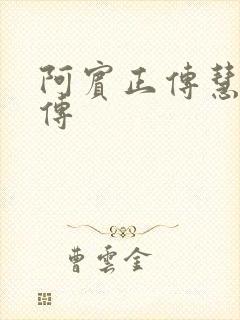 阿賓正傳慧
傳
曹雲金